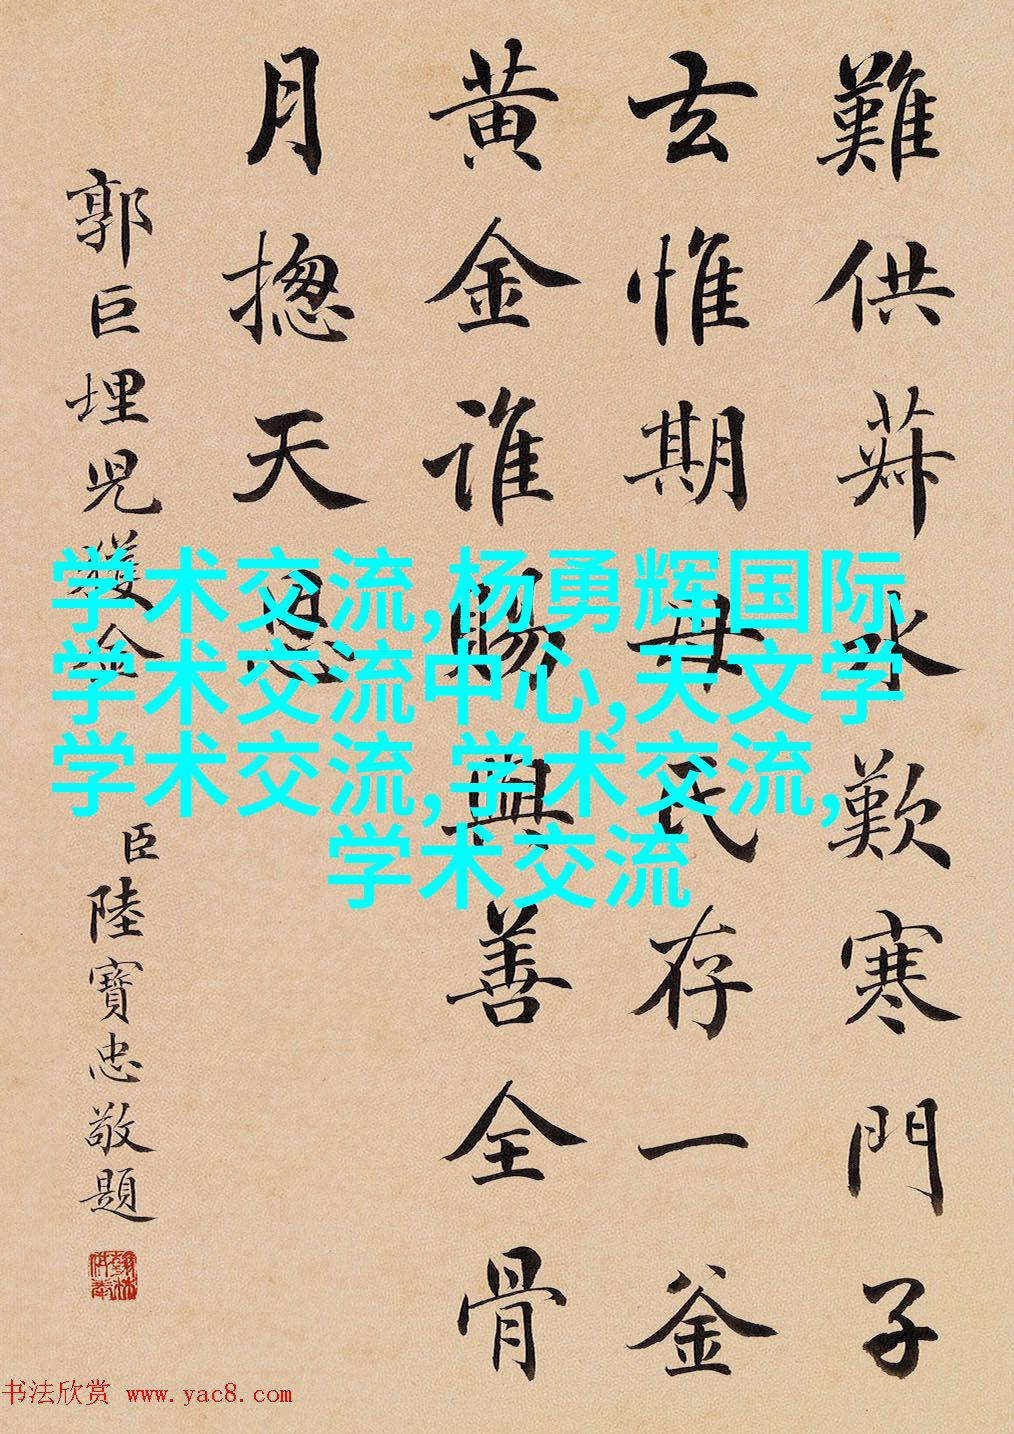 難供菽水歎寒門子
玄惟期毋氏存一釜
黄金誰賜與善全骨
月摠天恩
郭巨埋児獲金
臣陸寶忠敬題
学术交流,杨勇辉国际
学术交流中心,天文学
学术交流,学术交流,
学术交流
书法欣赏 www.yac8.com